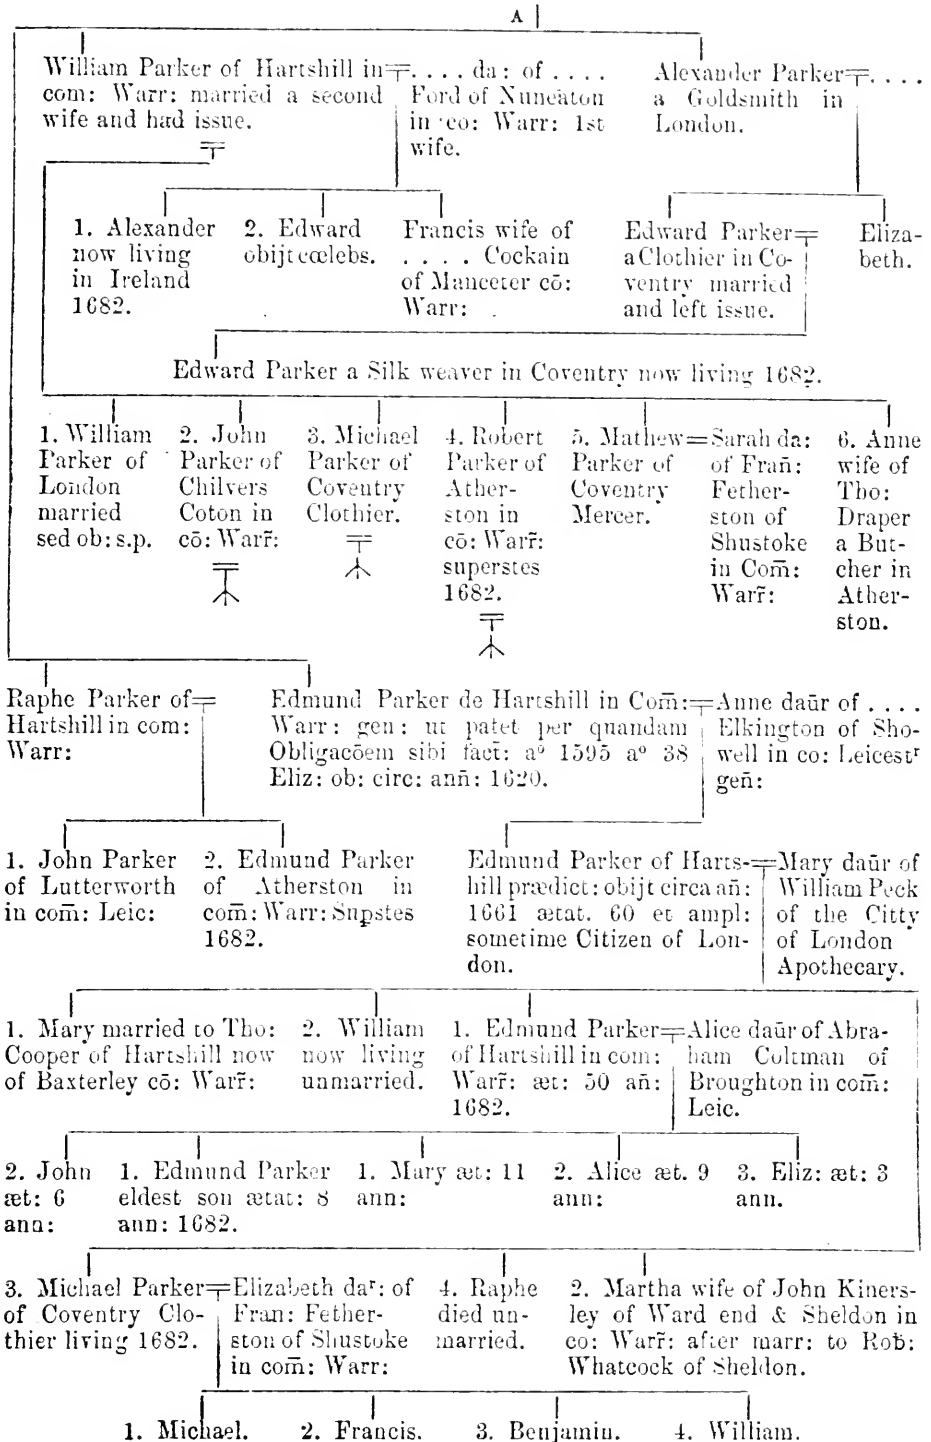 A
William Parker of Hartshill in
com: Warr: married a second
wife and had issue.
. . . . da: of . . . .
Ford of Nuneaton
in co: Warr: 1st
wife.
Alexander Parker
a Goldsmith in
London.
. . . .
1. Alexander
now living
in Ireland
1682.
2. Edward
obijt cœlebs.
Francis wife of
. . . . Cockain
of Manceter cō:
Warr:
Edward Parker
a Clothier in Co-
ventry married
and left issue.
Eliza-
beth.
Edward Parker a Silk weaver in Coventry now living 1682.
1. William
Parker of
London
married
sed ob: s.p.
2. John
Parker of
Chilvers
Coton in
cō: Warr̃:
3. Michael
Parker of
Coventry
Clothier.
4. Robert
Parker of
Ather-
ston in
cō: Warr̃:
superstes
1682.
5. Mathew=
Parker of
Coventry
Mercer.
Sarah da:
of Frañ:
Fether-
ston of
Shustoke
in Com̄:
Warr̃:
6. Anne
wife of
Tho:
Draper
a But-
cher in
Ather-
ston.
Raphe Parker of
Hartshill in com:
Warr:
Edmund Parker de Hartshill in Com̄:
Warr: gen: ut patet per quandam
Obligacōem sibi fact̄: aº 1595 aº 38
Eliz: ob: circ: anñ: 1620.
Anne daūr of . . . .
Elkington of Sho-
well in co: Leicestʳ
geñ:
1. John Parker
of Lutterworth
in com̄: Leic:
2. Edmund Parker
of Atherston in
com̄: Warr: Supstes
1682.
Edmund Parker of Harts-
hill prædict: obijt circa añ:
1661 ætat. 60 et ampl:
sometime Citizen of Lon-
don.
Mary daūr of
William Peck
of the Citty
of London
Apothecary.
1. Mary married to Tho:
Cooper of Hartshill now
of Baxterley cō: Warr̃:
2. William
now living
unmarried.
1. Edmund Parker
of Hartshill in com:
Warr̃: æt: 50 añ:
1682.
Alice daūr of Abra-
ham Coltman of
Broughton in com̄:
Leic.
2. John
æt: 6
ann:
1. Edmund Parker
eldest son ætat: 8
ann: 1682.
1. Mary æt: 11
ann:
2. Alice æt. 9
ann:
3. Eliz: æt: 3
ann.
3. Michael Parker
of Coventry Clo-
thier living 1682.
Elizabeth daʳ: of
Fran: Fether-
ston of Shustoke
in com̄: Warr:
4. Raphe
died un-
married.
2. Martha wife of John Kiners-
ley of Ward end & Sheldon in
co: Warr̃: after marr: to Rob̄:
Whatcock of Sheldon.
1. Michael.
2. Francis.
3. Benjamin.
4. William.